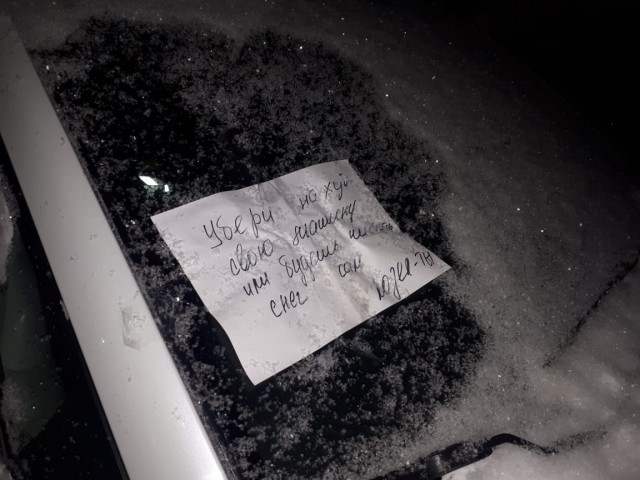 Убери на хуй
свою машину
или будешь чистить
снег сам